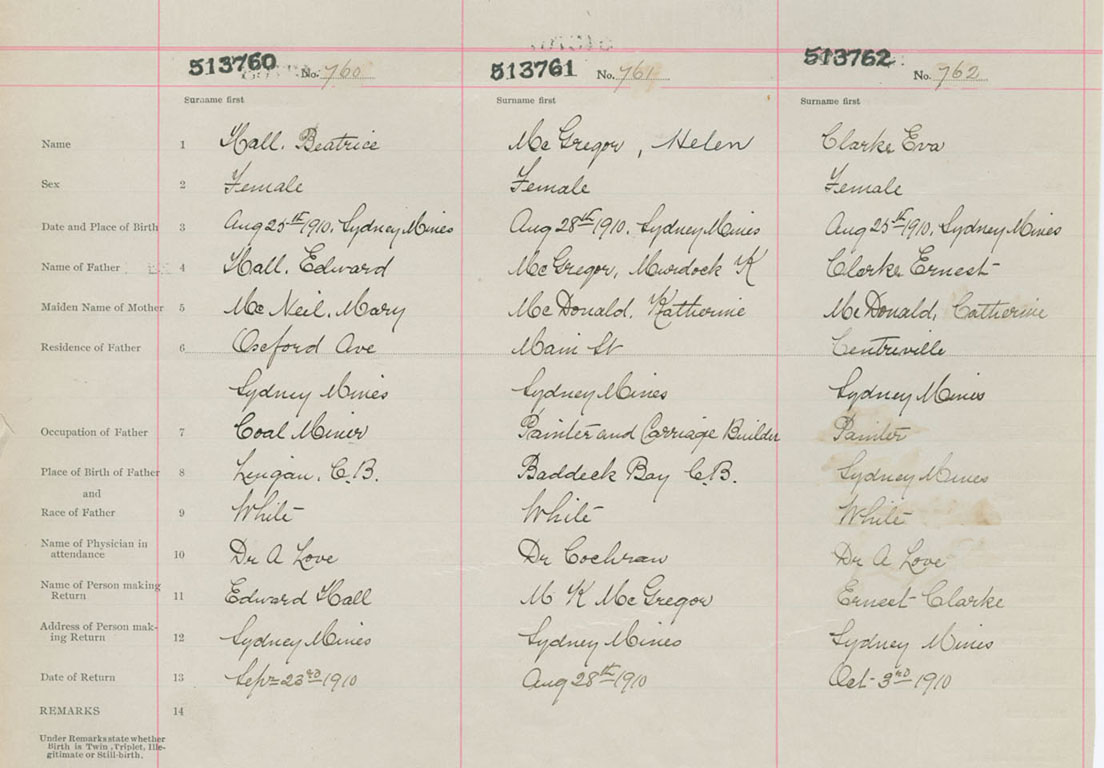 513760 No. 760 513761 No. 761 513762 No. 762
Surname first Surname first Surname first
Name 1 Hall. Beatrice McGregor, Helen Clarke Eva
Sex 2 Female Female Female
Date and Place of Birth 3 Aug 25th 1910. Sydney Mines Aug 28th 1910. Sydney Mines Aug 25th 1910. Sydney Mines
Name of Father 4 Hall. Edward McGregor, Murdock K Clarke Ernest
Maiden Name of Mother 5 McNeil. Mary McDonald. Katherine McDonald, Catherine
Residence of Father 6 Oxford Ave Main St Centreville
Sydney Mines Sydney Mines Sydney Mines
Occupation of Father 7 Coal Miner Painter and Carriage Builder Painter
Place of Birth of Father 8 Lingan, C.B. Baddeck Bay C.B. Sydney Mines
and
Race of Father 9 White White White
Name of Physician in
attendance 10 Dr A Love Dr Cochran Dr A Love
Name of Person making
Return 11 Edward Hall M K McGregor Ernest Clarke
Address of Person mak-
ing Return 12 Sydney Mines Sydney Mines Sydney Mines
Date of Return 13 Sept 23rd 1910 Aug 28th 1910 Oct 3rd 1910
REMARKS 14
Under Remarks state whether
Birth is Twin, Triplet, Ille-
gitimate or Still-birth.